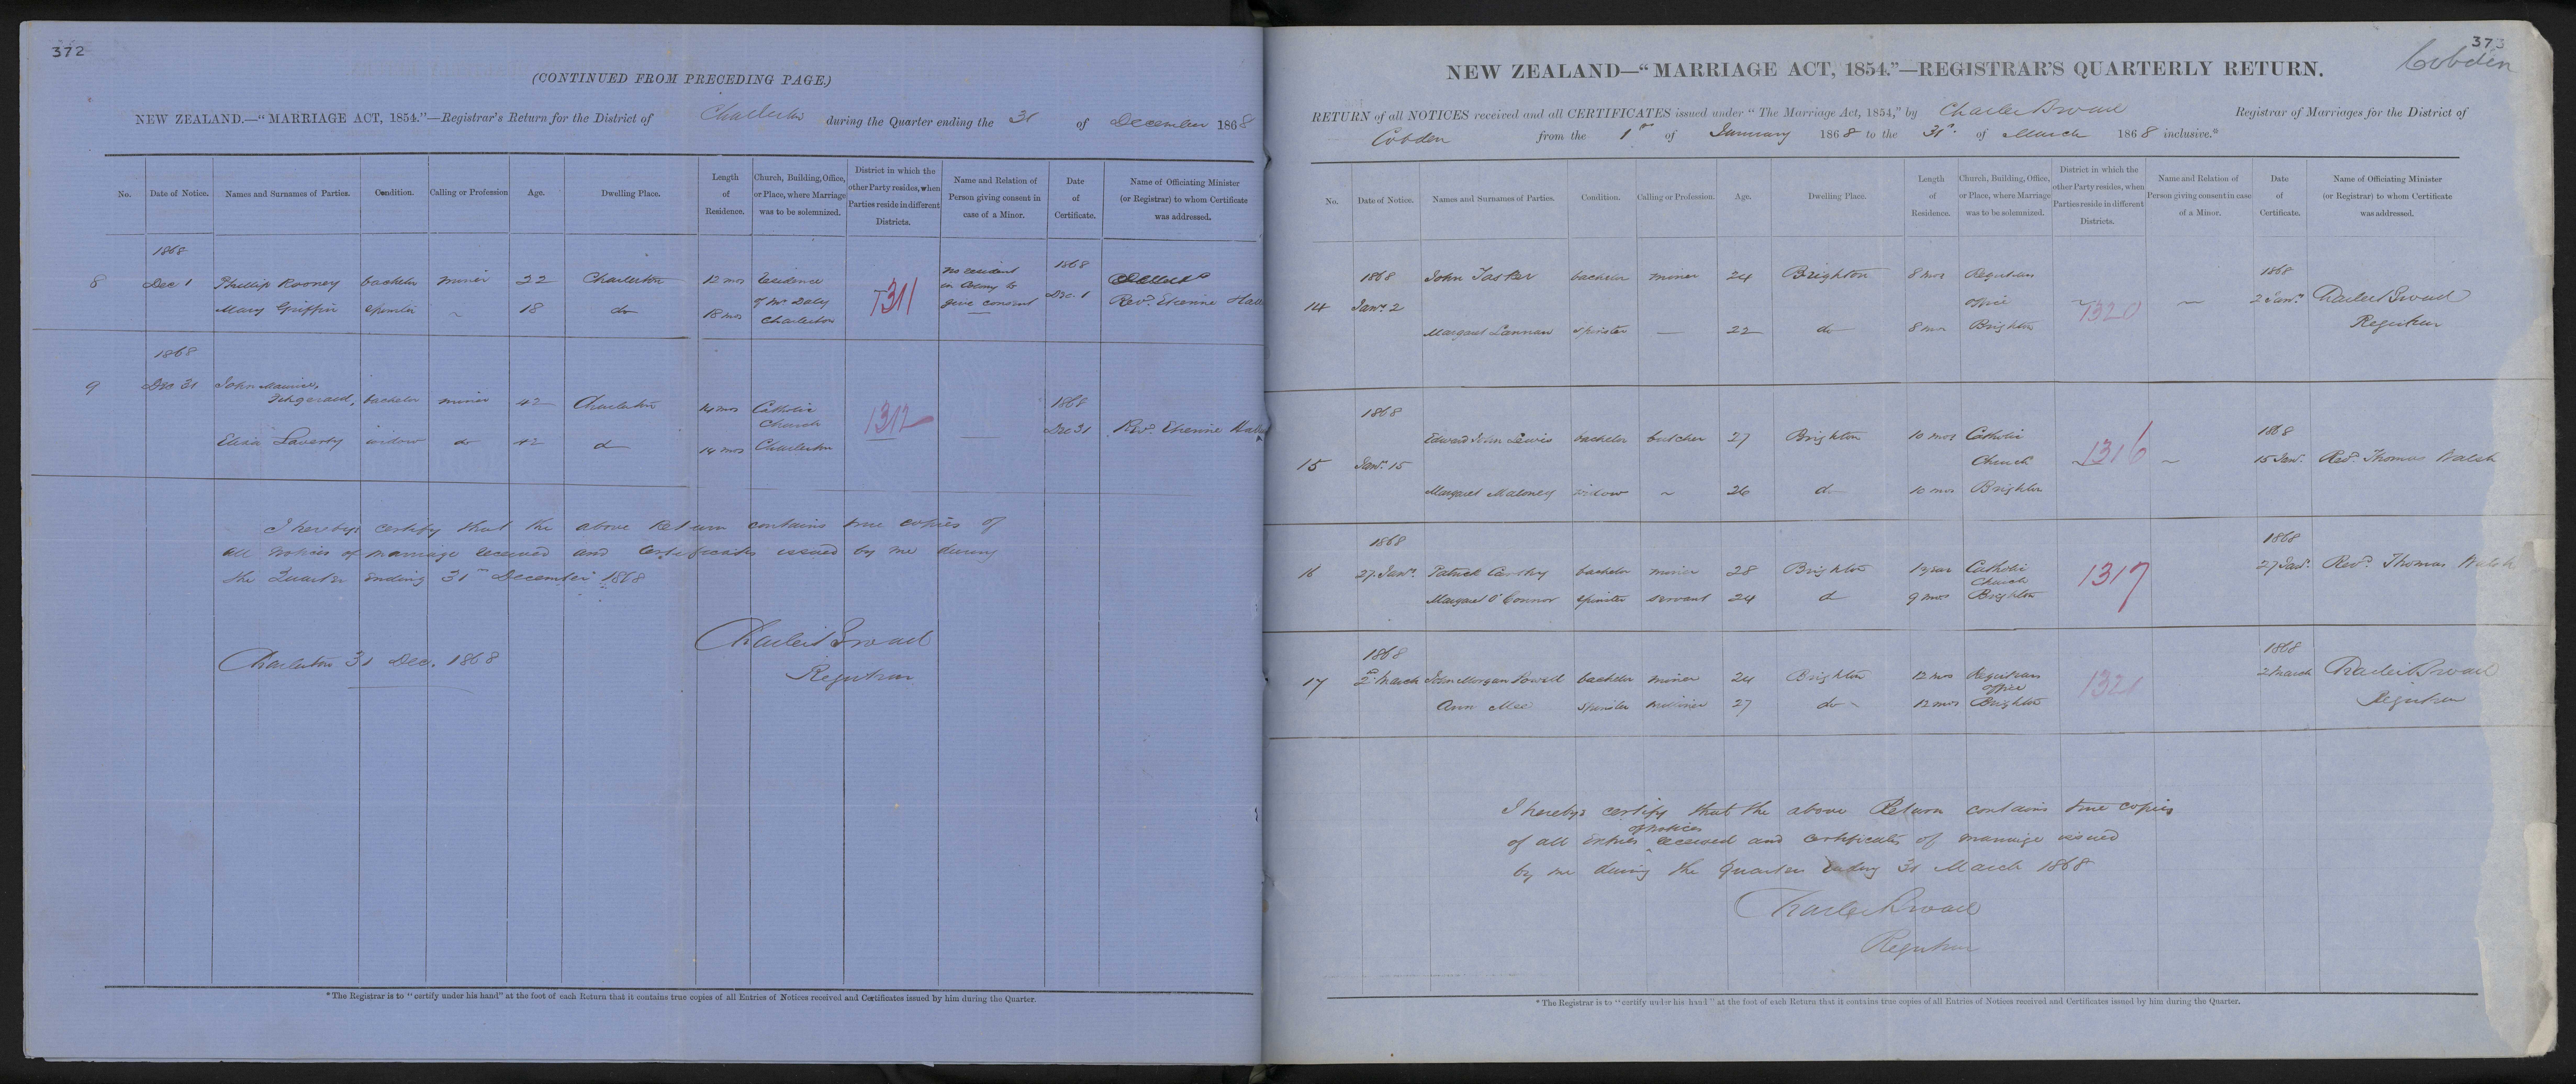 372
(CONTINUED FROM PRECEDING PAGE.)
NEW ZEALAND.—"MARRIAGE ACT, 1854."—Registrar's Return for the District of Charleston during the Quarter ending the 31 of December 1868
No. Date of Notice. Names and Surnames of Parties. Condition. Calling or Profession Age. Dwelling Place. Length of Residence. Church, Building, Office, or Place, where Marriage was to be solemnized. District in which the other Party resides, when Parties reside in different Districts. Name and Relation of Person giving consent in case of a Minor. Date of Certificate. Name of Officiating Minister (or Registrar) to whom Certificate was addressed.
1868 1868
8 Dec 1 Phillip Rooney bachelor miner 22 Charleston 12 mos residence of Mr Daly Charleston 1311 no resident in Colony to give consent Dec. 1 Revd. Etienne
Mary Griffin spinster ~ 18 do 18 mos
1868 1868
9 Dec 31 John Maurice Fitzgerald, bachelor miner 42 Charleston 14 mos Catholic Church Charleston 1312 Dec 31 Revd. Etienne
Eliza Laverty widow do 42 do 14 mos
I hereby certify that the above Return contains true copies of
all notices of marriage received and certificates issued by me during
the Quarter ending 31st December 1868
Charleston 31 Dec. 1868
Charles Broad
Registrar
*The Registrar is to "certify under his hand" at the foot of each Return that it contains true copies of all Entries of Notices received and Certificates issued by him during the Quarter.
373
Cobden
NEW ZEALAND—"MARRIAGE ACT, 1854."—REGISTRAR'S QUARTERLY RETURN.
RETURN of all NOTICES received and all CERTIFICATES issued under "The Marriage Act, 1854," by Charles Broad Registrar of Marriages for the District of
Cobden from the 1st of January 1868 to the 31st of March 1868 inclusive.*
No. Date of Notice. Names and Surnames of Parties. Condition. Calling or Profession. Age. Dwelling Place. Length of Residence. Church, Building, Office, or Place, where Marriage was to be solemnized. District in which the other Party resides, when Parties reside in different Districts. Name and Relation of Person giving consent in case of a Minor. Date of Certificate. Name of Officiating Minister (or Registrar) to whom Certificate was addressed.
1868 1868
14 Jany. 2 John Tasker bachelor miner 24 Brighton 8 mos Registrars office Brighton 1320 — 2 Jany. Charles Broad Registrar
Margaret Lannan spinster — 22 do 8 mos
1868 1868
15 Jany. 15 Edward John Lewis bachelor butcher 27 Brighton 10 mos Catholic Church Brighton 1316 ~ 15 Jany. Revd. Thomas Walsh
Margaret Maloney widow ~ 26 do 10 mos
1868 1868
16 27 Jany. Patrick Carthy bachelor miner 28 Brighton 1 year Catholic Church Brighton 1317 27 Jany. Revd. Thomas Walsh
Margaret O'Connor spinster servant 24 do 9 mos
1868 1868
17 2nd March John Morgan Powell bachelor miner 24 Brighton 12 mos Registrars office Brighton 1321 2 March Charles Broad Registrar
Ann Mee spinster milliner 27 do 12 mos
I hereby certify that the above Return contains true copies
of all entries of notices received and certificates of marriage issued
by me during the Quarter ending 31 March 1868
Charles Broad
Registrar
*The Registrar is to "certify under his hand" at the foot of each Return that it contains true copies of all Entries of Notices received and Certificates issued by him during the Quarter.